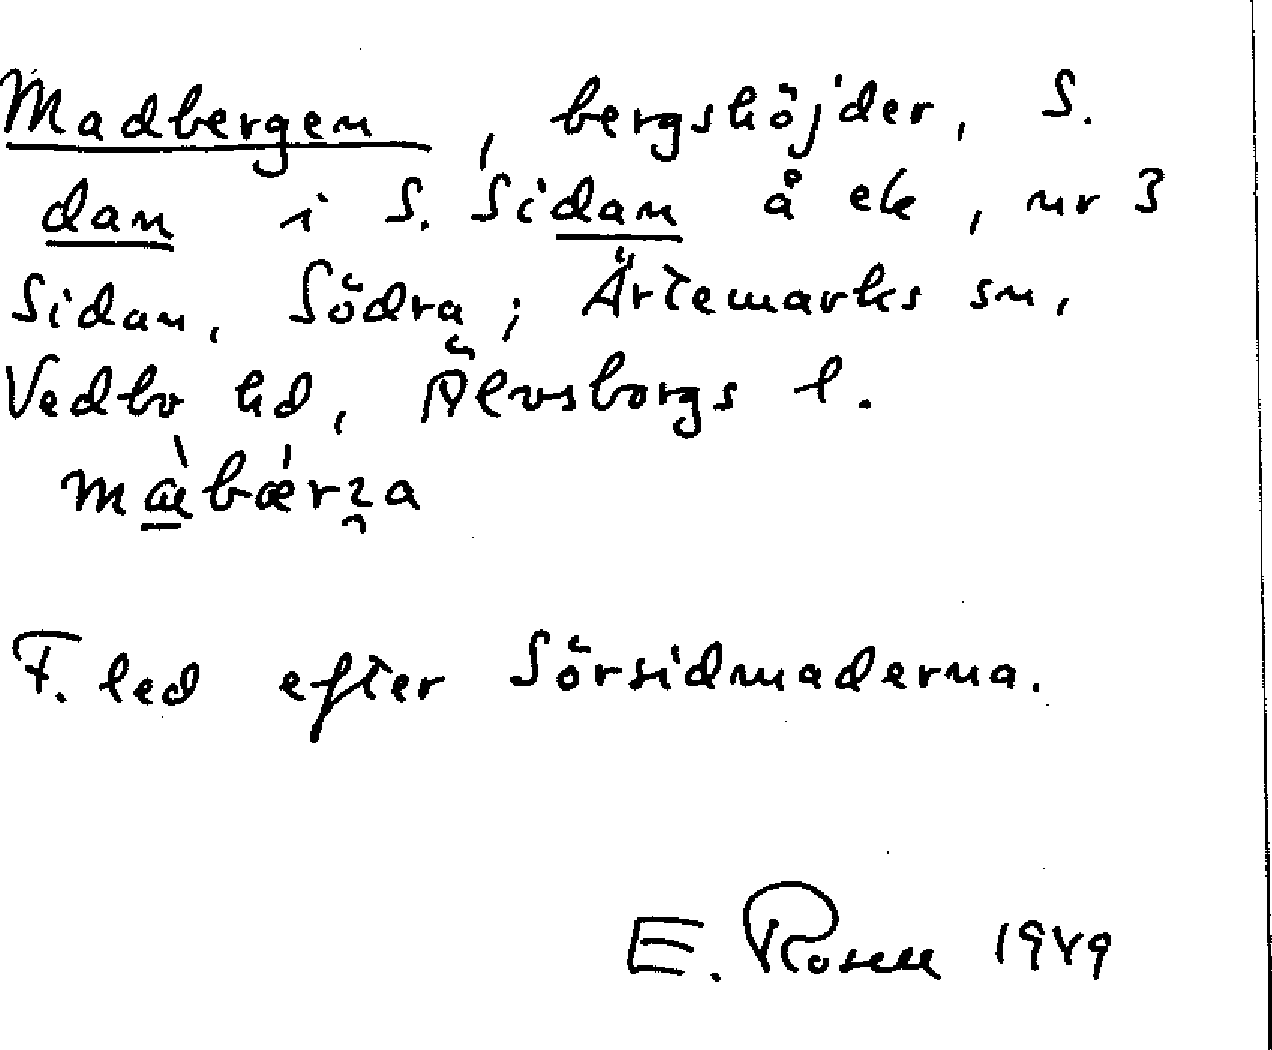 Madbergen, bergshöjder, S.
dan i S. Sidan å ek, nr 3
Sidan, Södra; Ärtemarks sn,
Vedbo hd, Älvsborgs l.
F. led efter Sörsidmaderna.
E. Rosell 1949